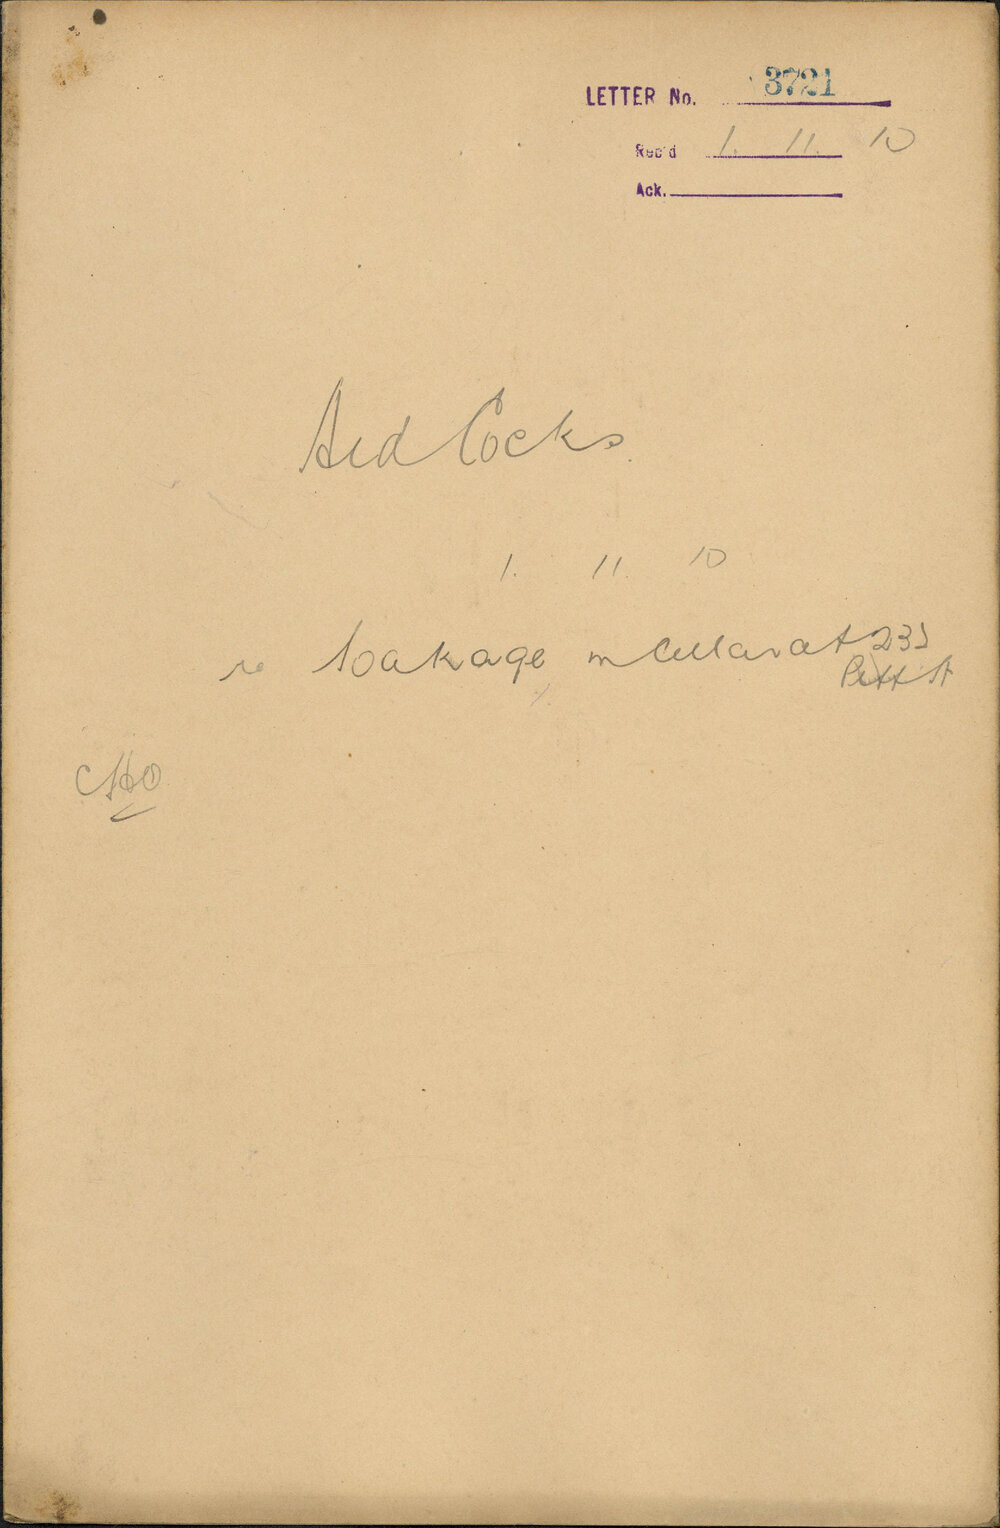 LETTER No. 3721
Rec'd 1. 11. 10
Ack.
Ald Cocks.
1. 11. 10
re soakage in Cellar at 232
Pitt St
CHO